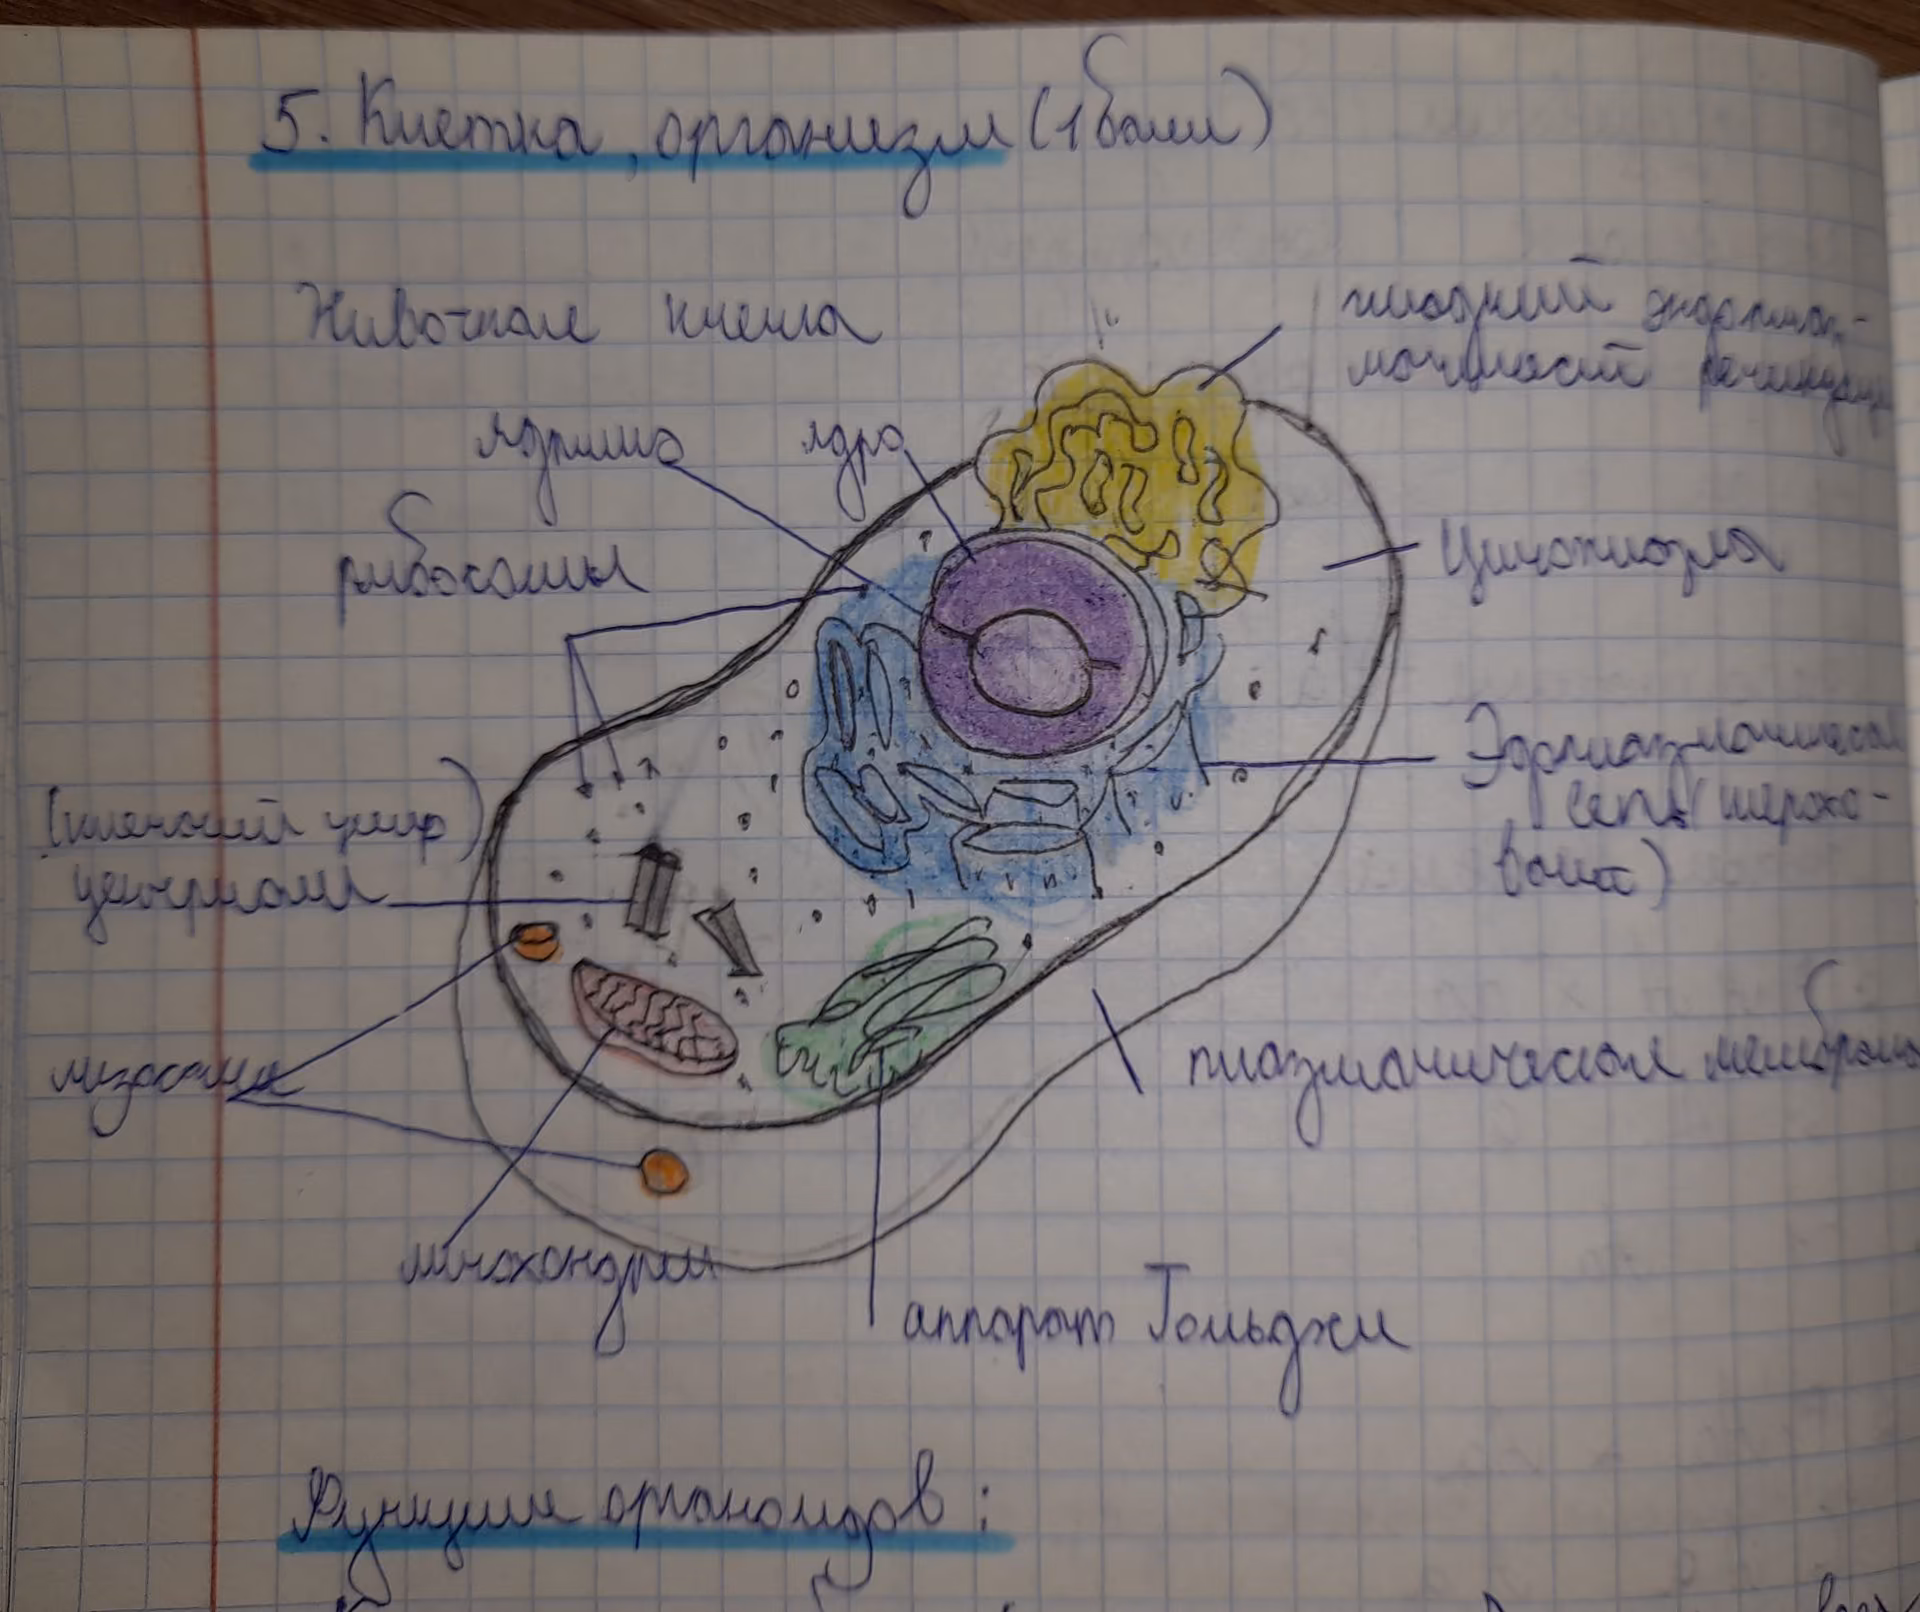 5. Клетка, организм (1 балл)
Животная клетка
гладкий эндоплаз-
матический ретикулум
ядрышко ядро
рибосомы
Цитоплазма
Эдоплазматическая
сеть (шерохо-
ватая)
(клеточный центр)
центриоли
лизосома
плазматическая мембрана
митохондрии
аппарат Гольджи
Функции органоидов: